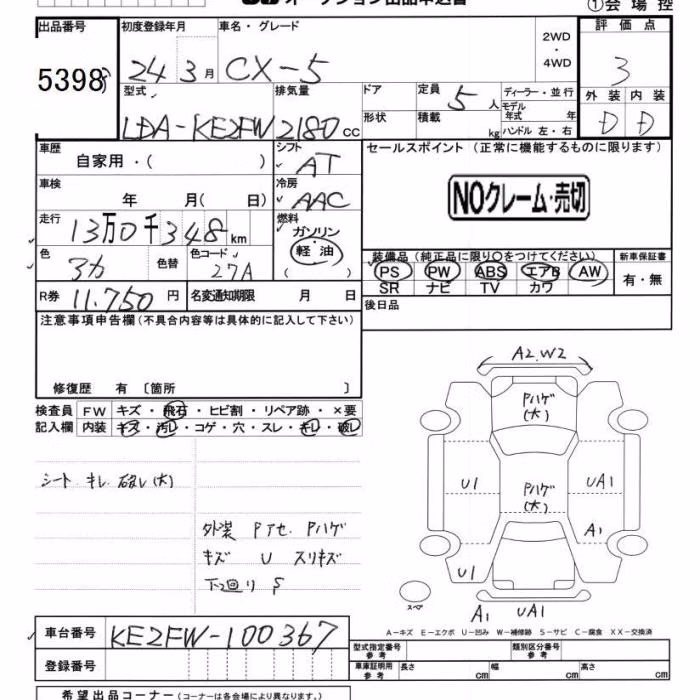 オークション出品申込書
①会場控
出品番号 初度登録年月 車名・グレード 2WD・4WD 評価点
5398 24 3月 CX-5 3
型式 排気量 ドア 定員 5人 ディーラー・並行 外装 内装
モデル年式 年
LDA-KE2FW 2180cc 形状 積載 kg ハンドル 左・右 D D
車歴 自家用・( ) シフト AT セールスポイント (正常に機能するものに限ります)
車検 年 月( 日) 冷房 AAC NOクレーム・売切
走行 13万0千348km 燃料 ガソリン 軽油 ( )
色 3カ 色替 色コード 27A
装備品 (純正品に限り○をつけてください) 新車保証書
PS PW ABS エアB AW 有・無
SR ナビ TV カワ
R券 11,750円 名変通知期限 月 日 後日品
注意事項申告欄(不具合内容等は具体的に記入して下さい)
修復歴 有 〔箇所 〕
検査員 FW キズ・飛石・ヒビ割・リペア跡・×要
記入欄 内装 キズ・汚レ・コゲ・穴・スレ・キレ・破レ
シート キレ 破レ(大)
外装 Pアセ Pハゲ
キズ U スリキズ
下回り S
A2.W2
Pハゲ
(大)
U1 UA1
Pハゲ
(大)
A1
U1
スペア
A1 UA1
A-キズ E-エクボ U-凹み W-補修跡 S-サビ C-腐食 XX-交換済
車台番号 KE2FW-100367
型式指定番号 参考 類別区分番号 参考
登録番号
車庫証明用 参考 長さ cm 幅 cm 高さ cm
希望出品コーナー(コーナーは各会場により異なります。)